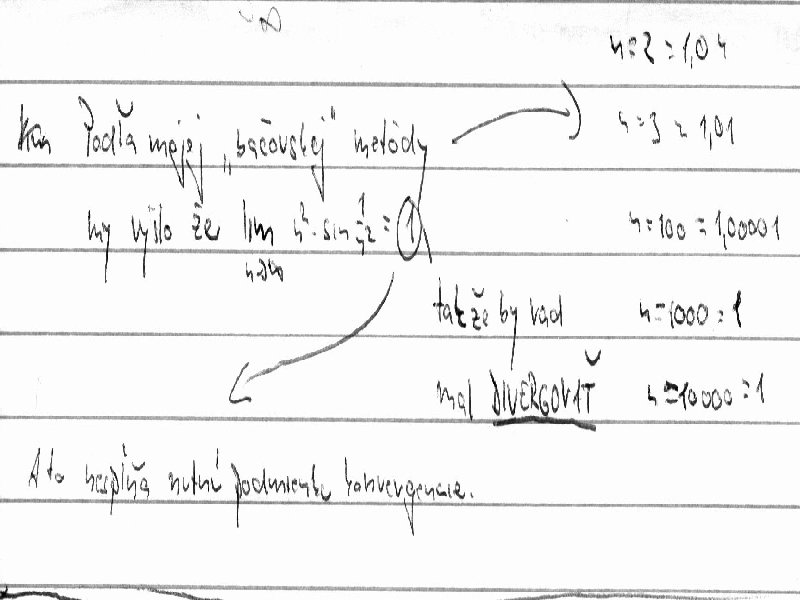 ∞
n=2 = 1,04
Podľa mojej „bačovskej" metódy
n=3 = 1,01
my vyšlo že lim n² · sin 1/n² = 1
n→∞
n=100 = 1,00001
takže by rad
n=1000 = 1
mal DIVERGOVAŤ
n=10000 = 1
A to nespĺňa nutnú podmienku konvergencie.